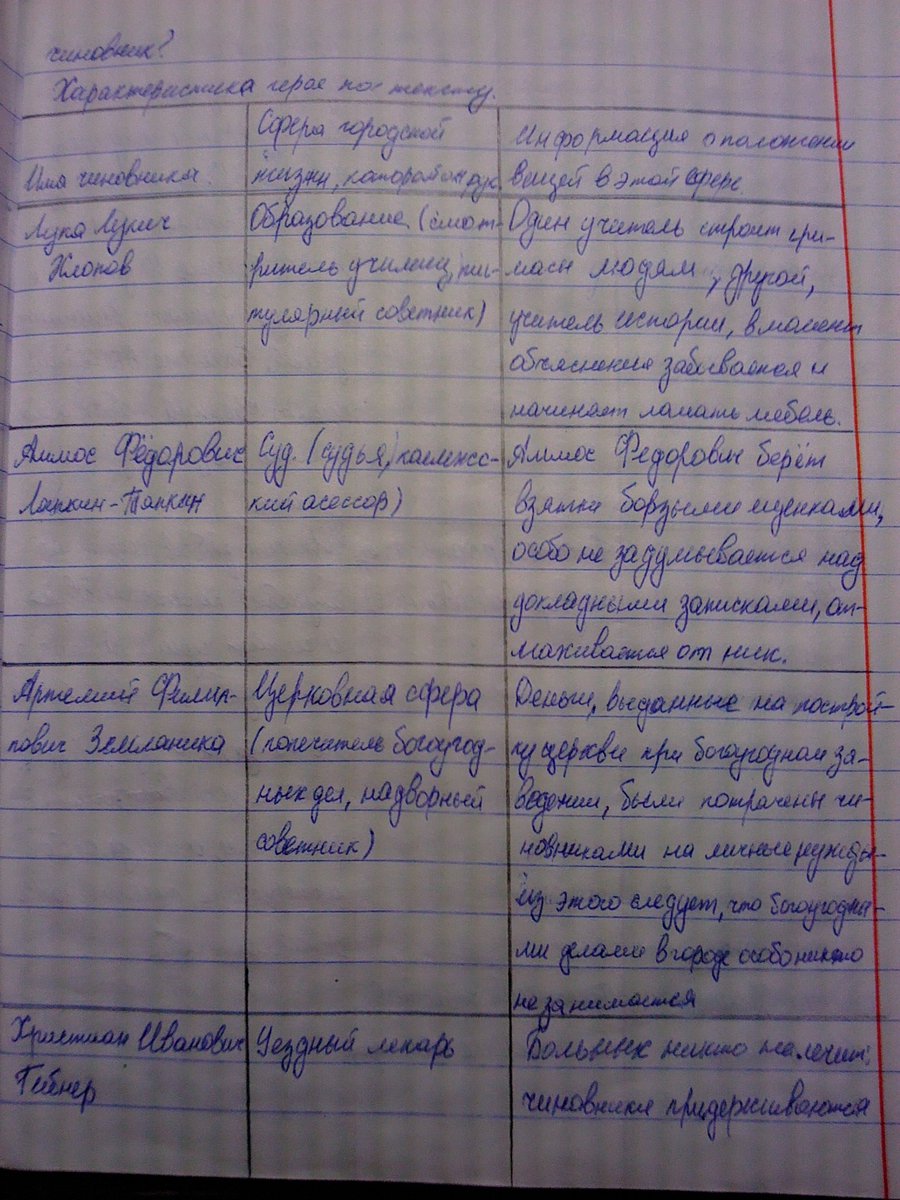 чиновник?
Характеристика героя по тексту.
Имя чиновника.
Сфера городской
жизни, которой он рук.
Информация о положении
вещей в этой сфере
Лука Лукич
Хлопов
Образование (смот-
ритель училищ, ти-
тулярный советник)
Один учитель строит гри-
масы людям, другой,
учитель истории, в момент
объяснения забывается и
начинает ломать мебель.
Аммос Фёдорович
Ляпкин-Тяпкин
Суд. (судья, коллежс-
кий асессор)
Аммос Федорович берёт
взятки борзыми щенками,
особо не задумывается над
докладными записками, от-
махивается от них.
Артемий Филип-
пович Земляника
Церковная сфера
(попечитель богоугод-
ных дел, надворный
советник)
Деньги, выданные на построй-
ку церкви при богоугодном за-
ведении, были потрачены чи-
новниками на личные нужды
из этого следует, что богоугодны-
ми делами в городе особо никто
не занимается
Христиан Иванович
Гибнер
Уездный лекарь
Больных никто не лечит:
чиновники придерживаются